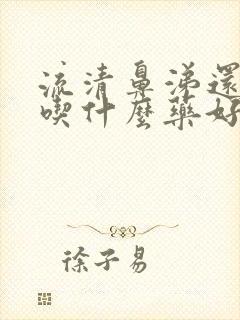 流清鼻涕還
喫什麼藥好
徐子易